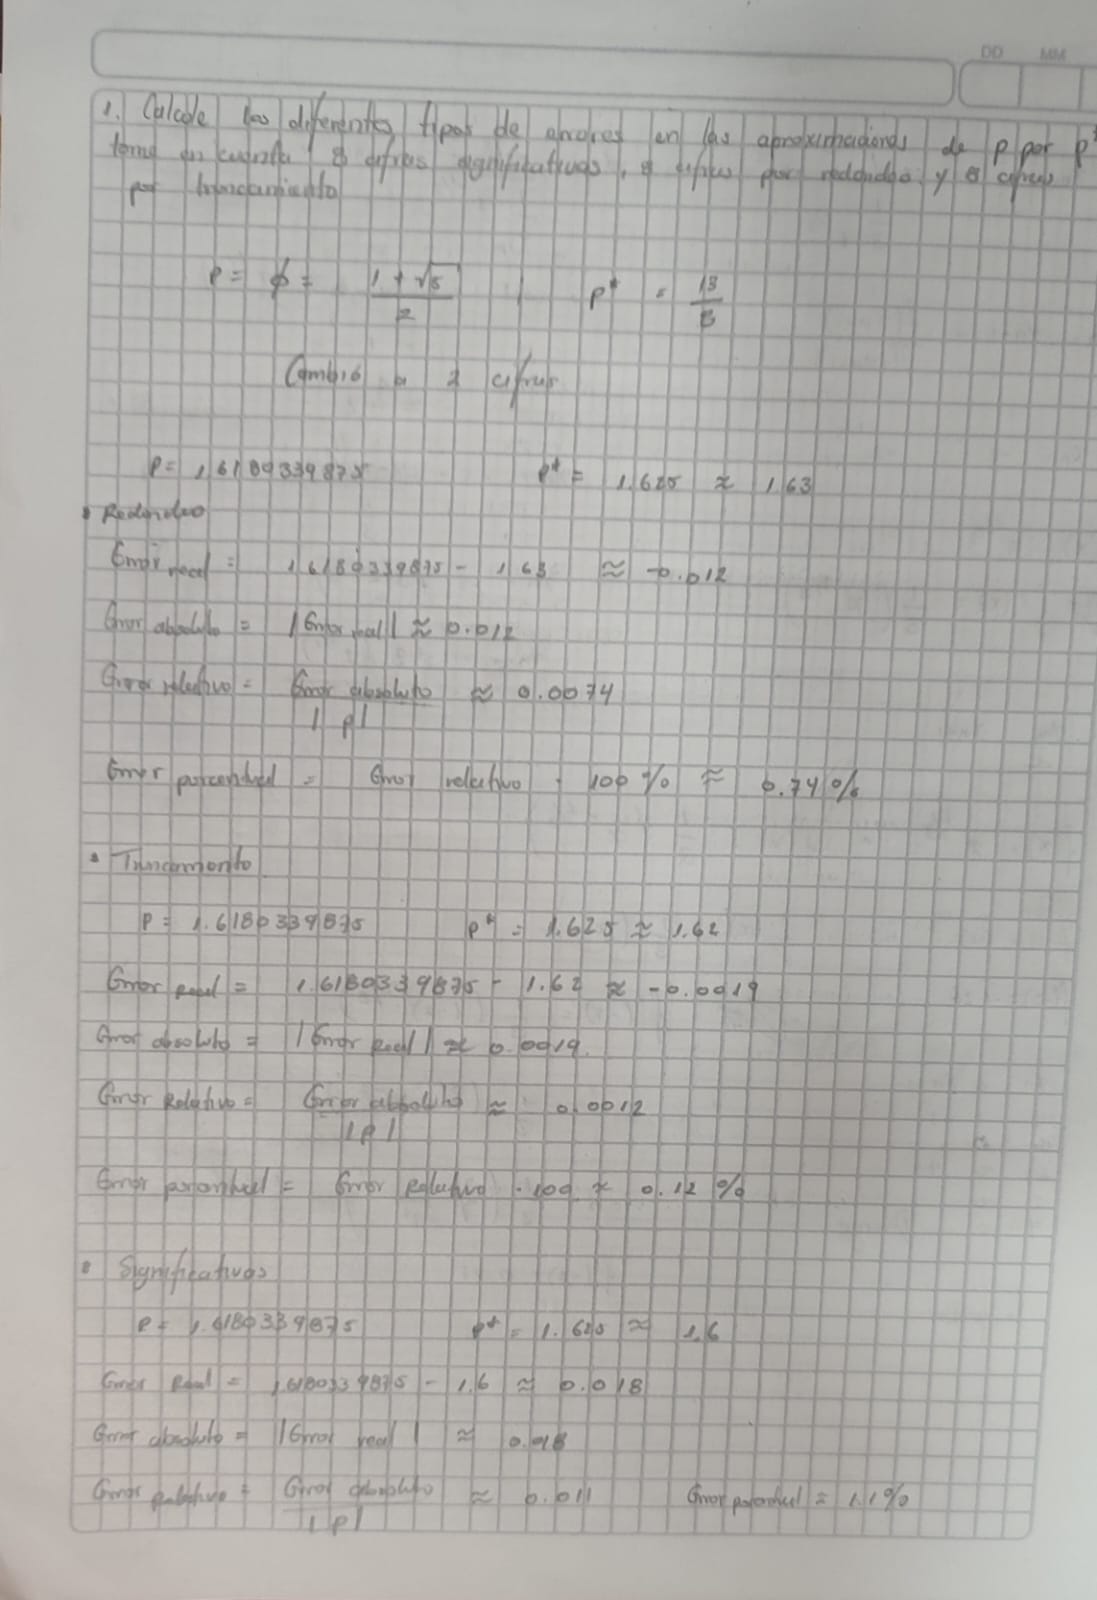 DD MM
1. Calcule los diferentes tipos de errores en las aproximaciones de p por p*
tome en cuenta 8 cifras significativas, 8 cifras por redondeo y 8 cifras
por truncamiento
P = φ = 1 + √5 / 2 | P* = 13 / 8
Cambió a 2 cifras
P = 1,6180339875 P* = 1.625 ≈ 1,63
• Redondeo
Error real = 1,6180339875 - 1,63 ≈ -0.012
Error absoluto = |Error real| ≈ 0.012
Error relativo = Error absoluto / |p| ≈ 0.0074
Error porcentual = Error relativo · 100 % ≈ 0.74 %
• Truncamiento
P = 1.6180339875 P* = 1.625 ≈ 1.62
Error Real = 1.6180339875 - 1.62 ≈ -0.0019
Error absoluto = |Error Real| ≈ 0.0019.
Error Relativo = Error absoluto / |p| ≈ 0.0012
Error porcentual = Error Relativo · 100 ≈ 0.12 %
• Significativas
P = 1.6180339875 P* = 1.625 ≈ 1.6
Error Real = 1,6180339875 - 1.6 ≈ 0.018
Error absoluto = |Error real| ≈ 0.018
Error relativo = Error absoluto / |p| ≈ 0.011 Error porcentual = 1.1%